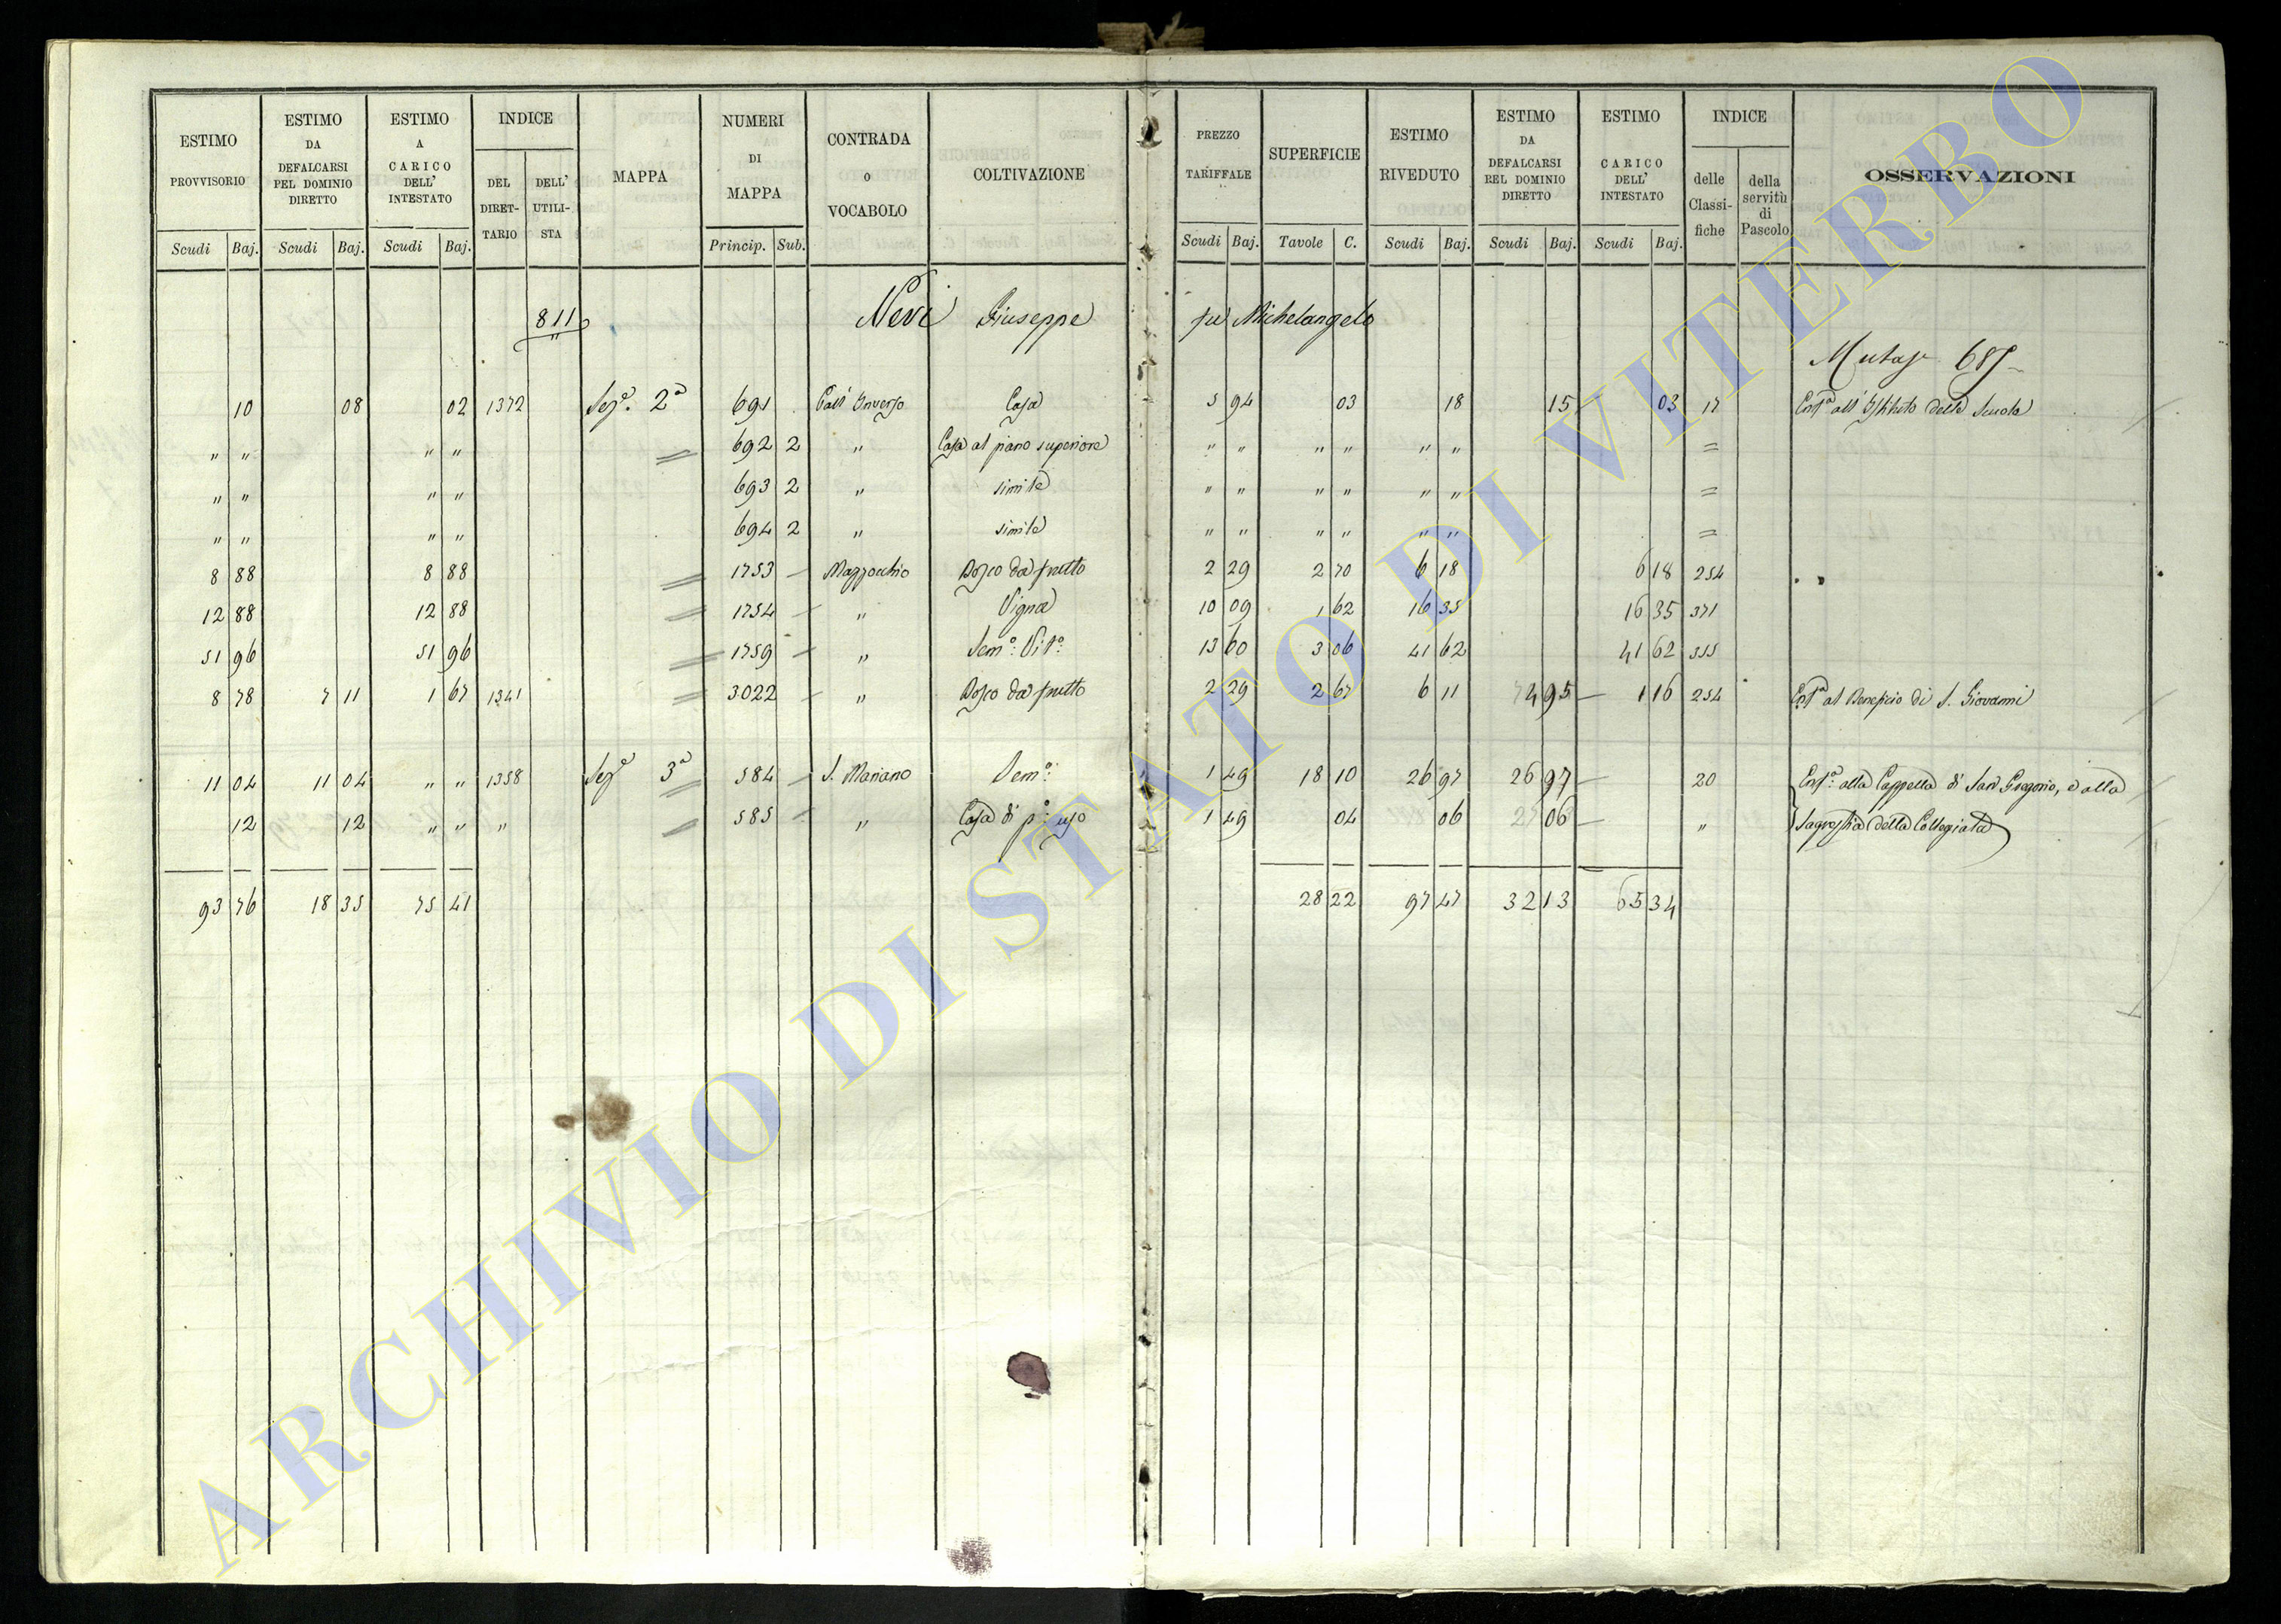 ESTIMO PROVVISORIO Scudi Baj. ESTIMO DA DEFALCARSI PEL DOMINIO DIRETTO Scudi Baj. ESTIMO A CARICO DELL' INTESTATO Scudi Baj. INDICE DEL DIRET-TARIO DELL' UTILI-STA MAPPA NUMERI DI MAPPA Princip. Sub. CONTRADA O VOCABOLO COLTIVAZIONE PREZZO TARIFFALE Scudi Baj. SUPERFICIE Tavole C. ESTIMO RIVEDUTO Scudi Baj. ESTIMO DA DEFALCARSI REL DOMINIO DIRETTO Scudi Baj. ESTIMO A CARICO DELL' INTESTATO Scudi Baj. INDICE delle Classi-fiche della servitù di Pascolo OSSERVAZIONI
811 Nevi Giuseppe fu Michelangelo
685
10 08 02 1372 Sez.a 2a 691 Casa 5 94 03 18 15 03 17 all' Istituto delle Scuole
" " " " 692 2 " Casa al piano superiore " " " " " " =
" " " " 693 2 " simile " " " " " " =
" " " " 694 2 " simile " " " " " " =
8 88 8 88 = 1753 Mazzocchio Bosco da frutto 2 29 2 70 6 18 6 18 254
12 88 12 88 = 1754 " Vigna 10 09 1 62 16 35 16 35 371
51 96 51 96 = 1759 " Sem.o Vit.o 13 60 3 06 41 62 41 62 355
8 78 7 11 1 67 1341 = 3022 " Bosco da frutto 2 29 2 67 6 11 4 95 1 16 254 al Beneficio di S. Giovanni
11 04 11 04 " " 1358 Sez.a 3a 584 S. Mariano Sem.o 1 49 18 10 26 97 26 97 20 alla Cappella di San Gregorio, e alla
12 12 " " " = 585 " Casa di p.o uso 1 49 04 06 06 " Sagrestia della Collegiata
93 76 18 35 75 41 28 22 97 47 32 13 65 34
ARCHIVIO DI STATO DI VITERBO